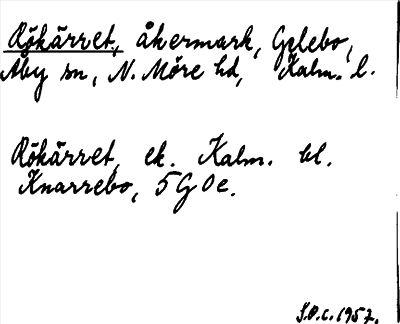 Rökärret, åkermark, Gelebo,
Åby sn, N. Möre hd, Kalm. l.
Rökärret, ek. Kalm. bl.
Knarrebo, 5G0e.
S.O.C. 1957.